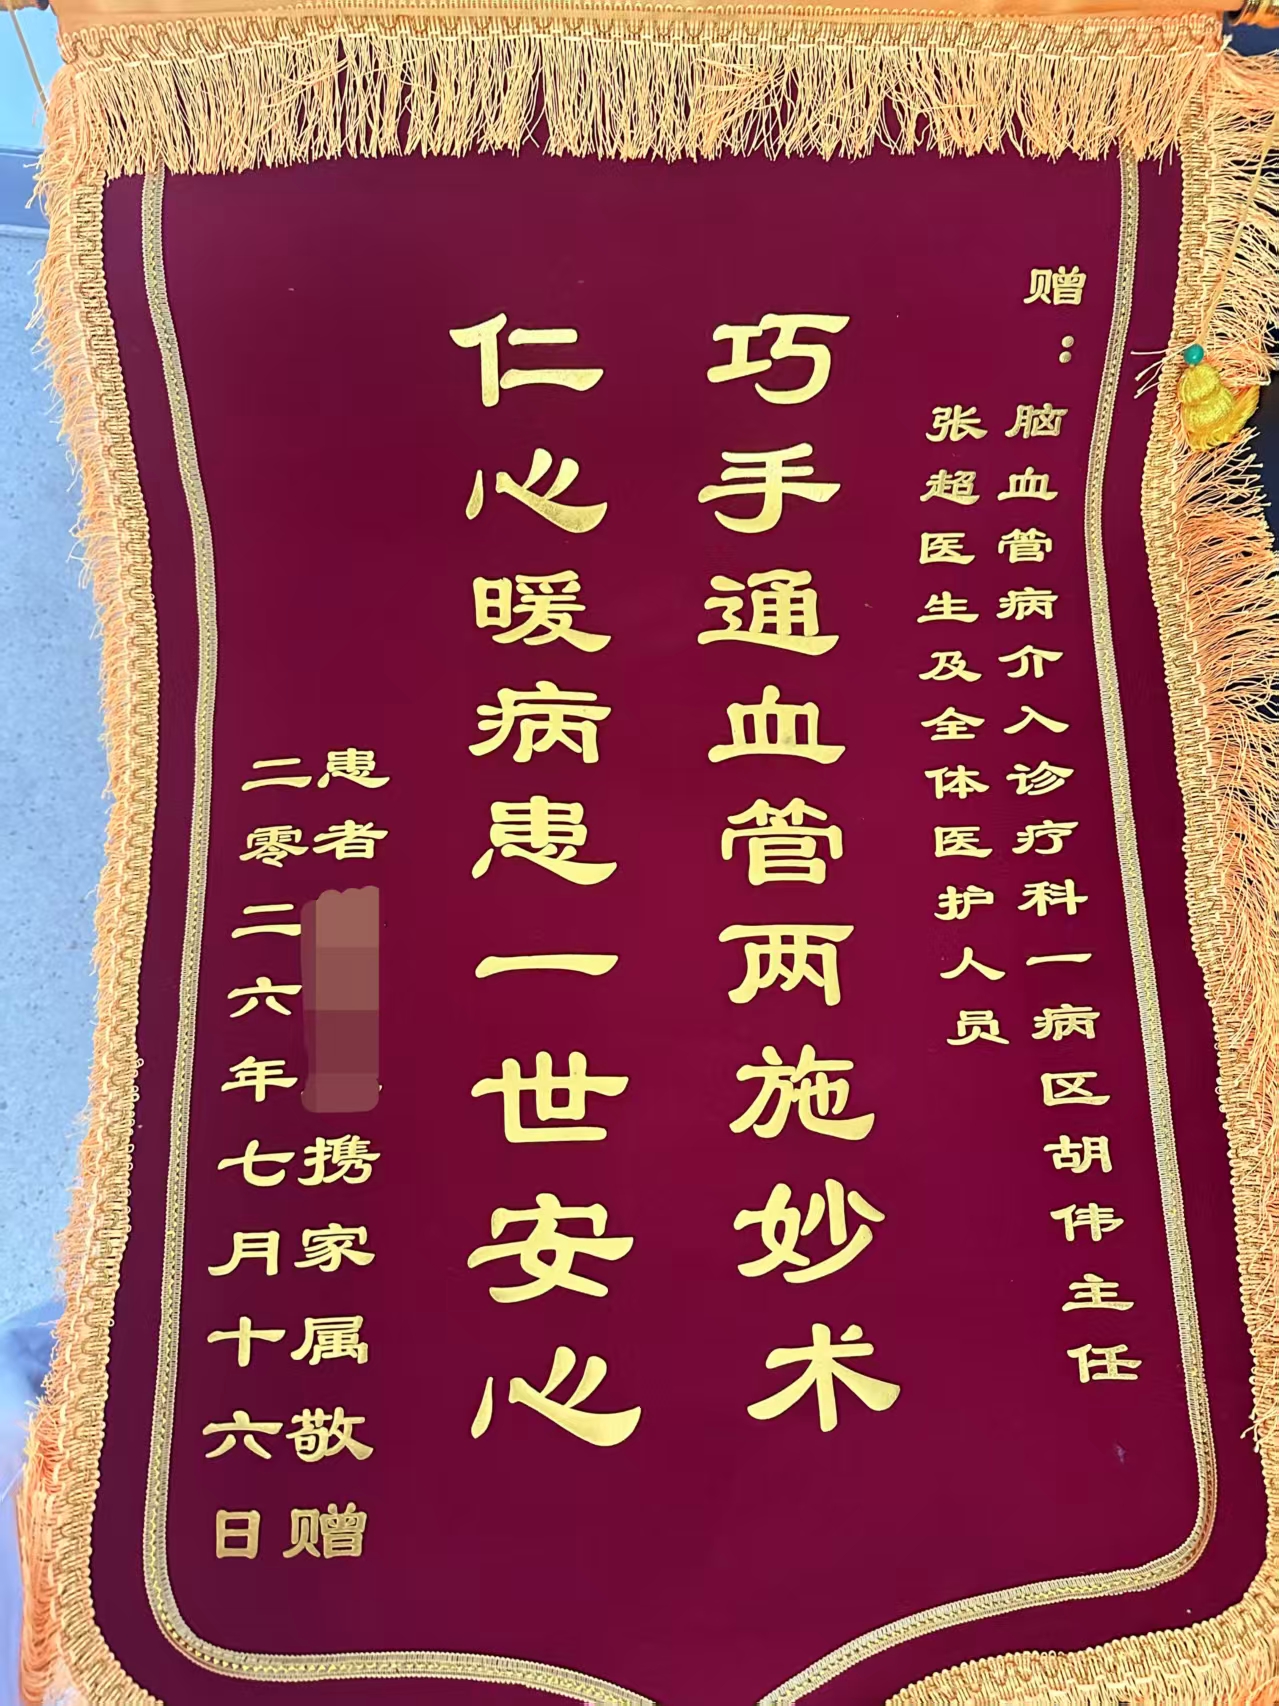 赠：
脑血管病介入诊疗科一病区胡伟主任
张超医生及全体医护人员
巧手通血管两施妙术
仁心暖病患一世安心
患者
携家属敬赠
二零二六年七月十六日